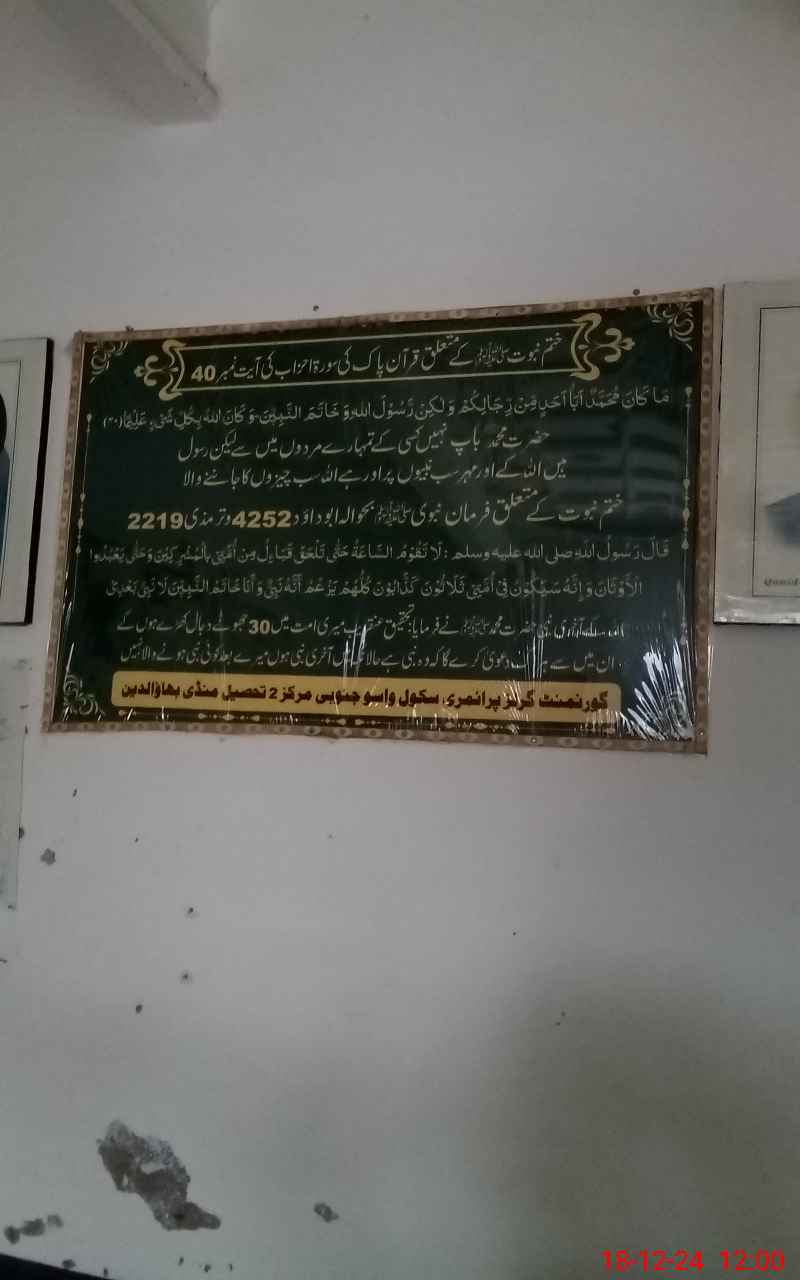 ختم نبوت ﷺ کے متعلق قرآن پاک کی سورۃ احزاب کی آیت نمبر 40
مَا كَانَ مُحَمَّدٌ اَبَآ اَحَدٍ مِّنْ رِّجَالِكُمْ وَ لٰكِنْ رَّسُوْلَ اللهِ وَ خَاتَمَ النَّبِيّٖنَ۔وَ كَانَ اللهُ بِكُلِّ شَیْءٍ عَلِيْمًا(۴۰)
حضرت محمد باپ نہیں کسی کے تمہارے مردوں میں سے لیکن رسول
ہیں اللہ کے اور مہر سب نبیوں پر اور ہے اللہ سب چیزوں کا جاننے والا
ختم نبوت کے متعلق فرمان نبوی ﷺ بحوالہ ابوداؤد 4252 وترمذی 2219
قَالَ رَسُوْلُ اللهِ صلی الله علیه وسلم : لَا تَقُوْمُ السَّاعَةُ حَتّٰى تَلْحَقَ قَبَائِلُ مِنْ اُمَّتِىْ بِالْمُشْرِكِيْنَ وَحَتّٰى يَعْبُدُوا
الْاَوْثَانَ وَ اِنَّهٗ سَيَكُوْنُ فِىْ اُمَّتِىْ ثَلَاثُوْنَ كَذَّابُوْنَ كُلُّهُمْ يَزْعُمُ اَنَّهٗ نَبِىٌّ وَ اَنَا خَاتَمُ النَّبِيّٖنَ لَا نَبِىَّ بَعْدِىْ
اللہ کے آخری نبی حضرت محمد ﷺ نے فرمایا: تحقیق عنقریب میری امت میں 30 جھوٹے دجال کھڑے ہوں گے
ان میں سے ہر دعویٰ کرے گا کہ وہ نبی ہے حالانکہ میں آخری نبی ہوں میرے بعد کوئی نبی ہونے والا نہیں
گورنمنٹ گرلز پرائمری سکول واسو جنوبی مرکز 2 تحصیل منڈی بہاؤالدین
18-12-24 12:00